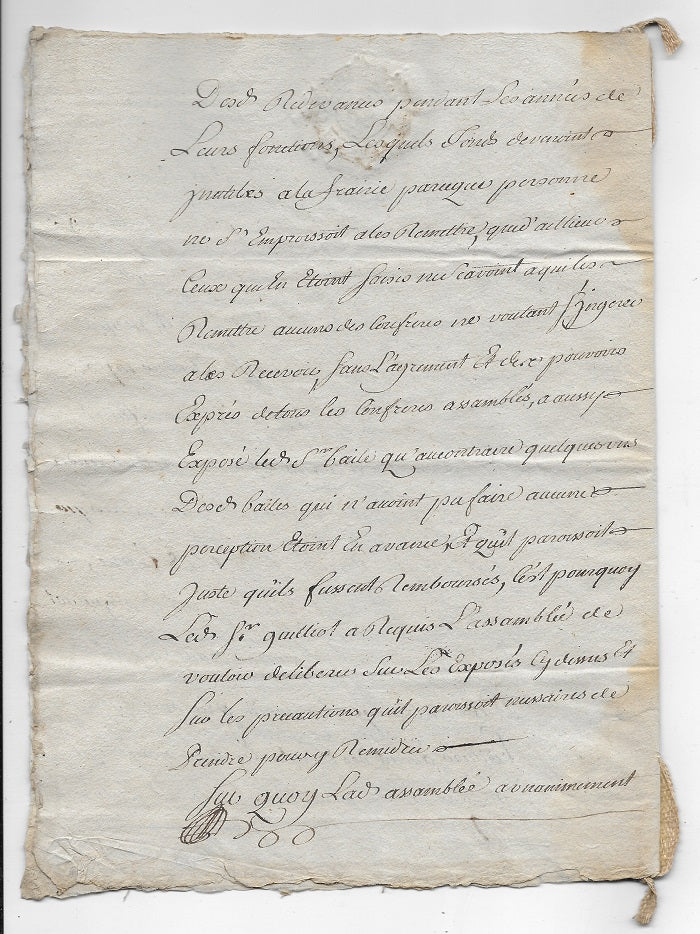 Desd. Redevances pendant Les années de
Leurs fonctions, Lesquels fonds devenoint
jnutiles a la frairie parceque personne
ne S'Empressoit a les Remettre, que d'ailleurs
Ceux qui En Etoint saisis ne scavoint a qui les
Remettre aucuns des Confreres ne voulant s'jngerer
a les Recevoir, sans L'agrement Et des pouvoirs
Exprés de tous les Confreres assamblés, a aussy
Exposé led. Sr. baile qu'au contraire quelques uns
Desd. bailes qui n'avoint pu faire aucune
perception Etoint En avance, Et qu'il paroissoit
Juste qu'ils fussent Remboursés, C'est pourquoy
Led. Sr. guilliot a Requis L'assamblée de
vouloir deliberer Sur Les Exposés Cy dessus Et
Sur les precautions qu'il paroissoit nessaires de
Prendre pour y Remedier
Sur quoy Lad. assamblée a unanimement